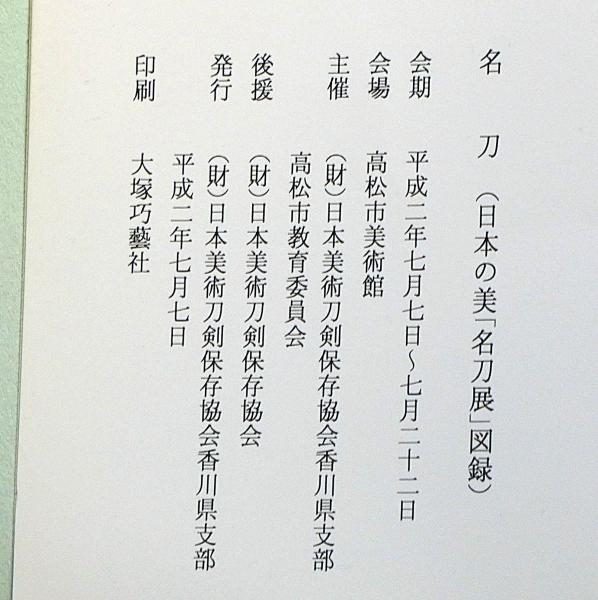 名刀（日本の美「名刀展」図録）
会期 平成二年七月七日～七月二十二日
会場 高松市美術館
主催 （財）日本美術刀剣保存協会香川県支部
高松市教育委員会
後援 （財）日本美術刀剣保存協会
発行 （財）日本美術刀剣保存協会香川県支部
平成二年七月七日
印刷 大塚巧藝社